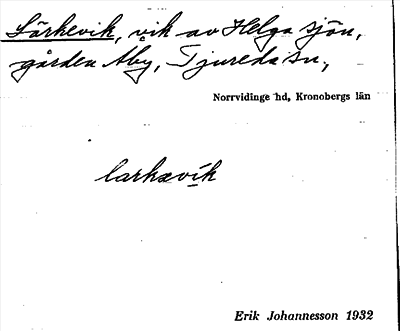 Lärkevik, vik av Helgasjön,
gården Åby, Tjureda sn,
Norrvidinge hd, Kronobergs län
larkævik
Erik Johannesson 1932